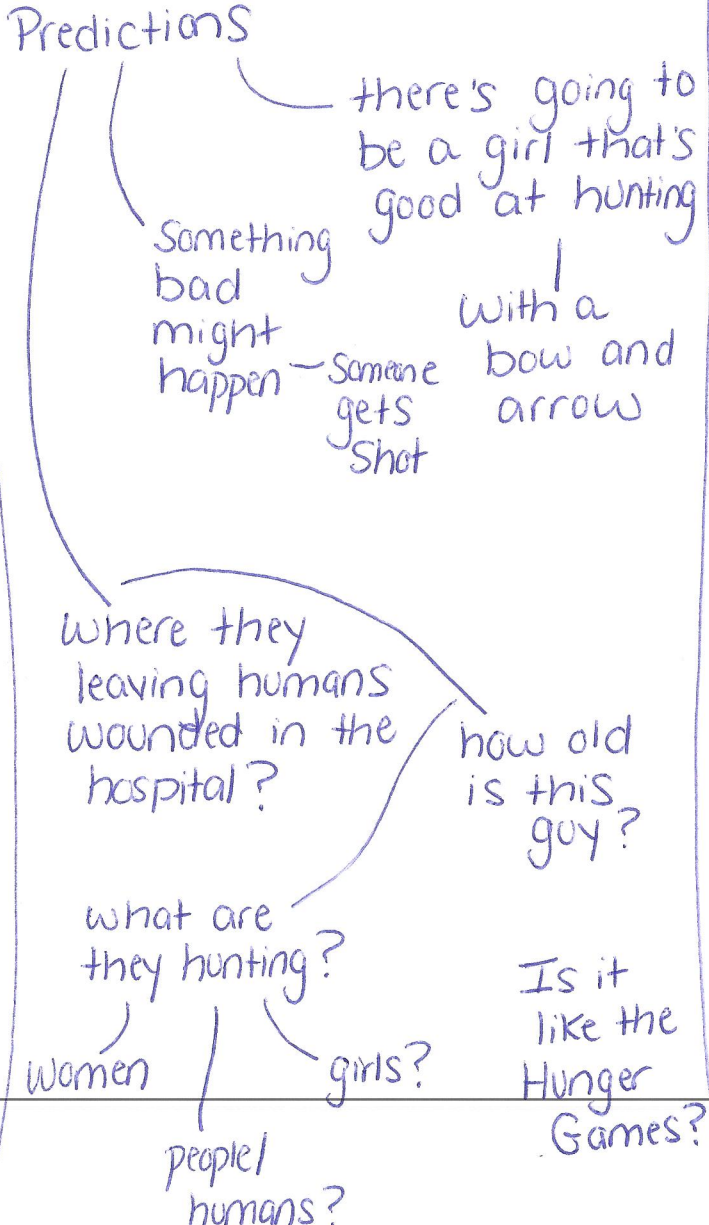 Predictions
there's going to
be a girl that's
good at hunting
with a
bow and
arrow
Something
bad
might
happen
Someone
gets
Shot
where they
leaving humans
wounded in the
hospital?
how old
is this
guy?
what are
they hunting?
women
people/
humans?
girls?
Is it
like the
Hunger
Games?